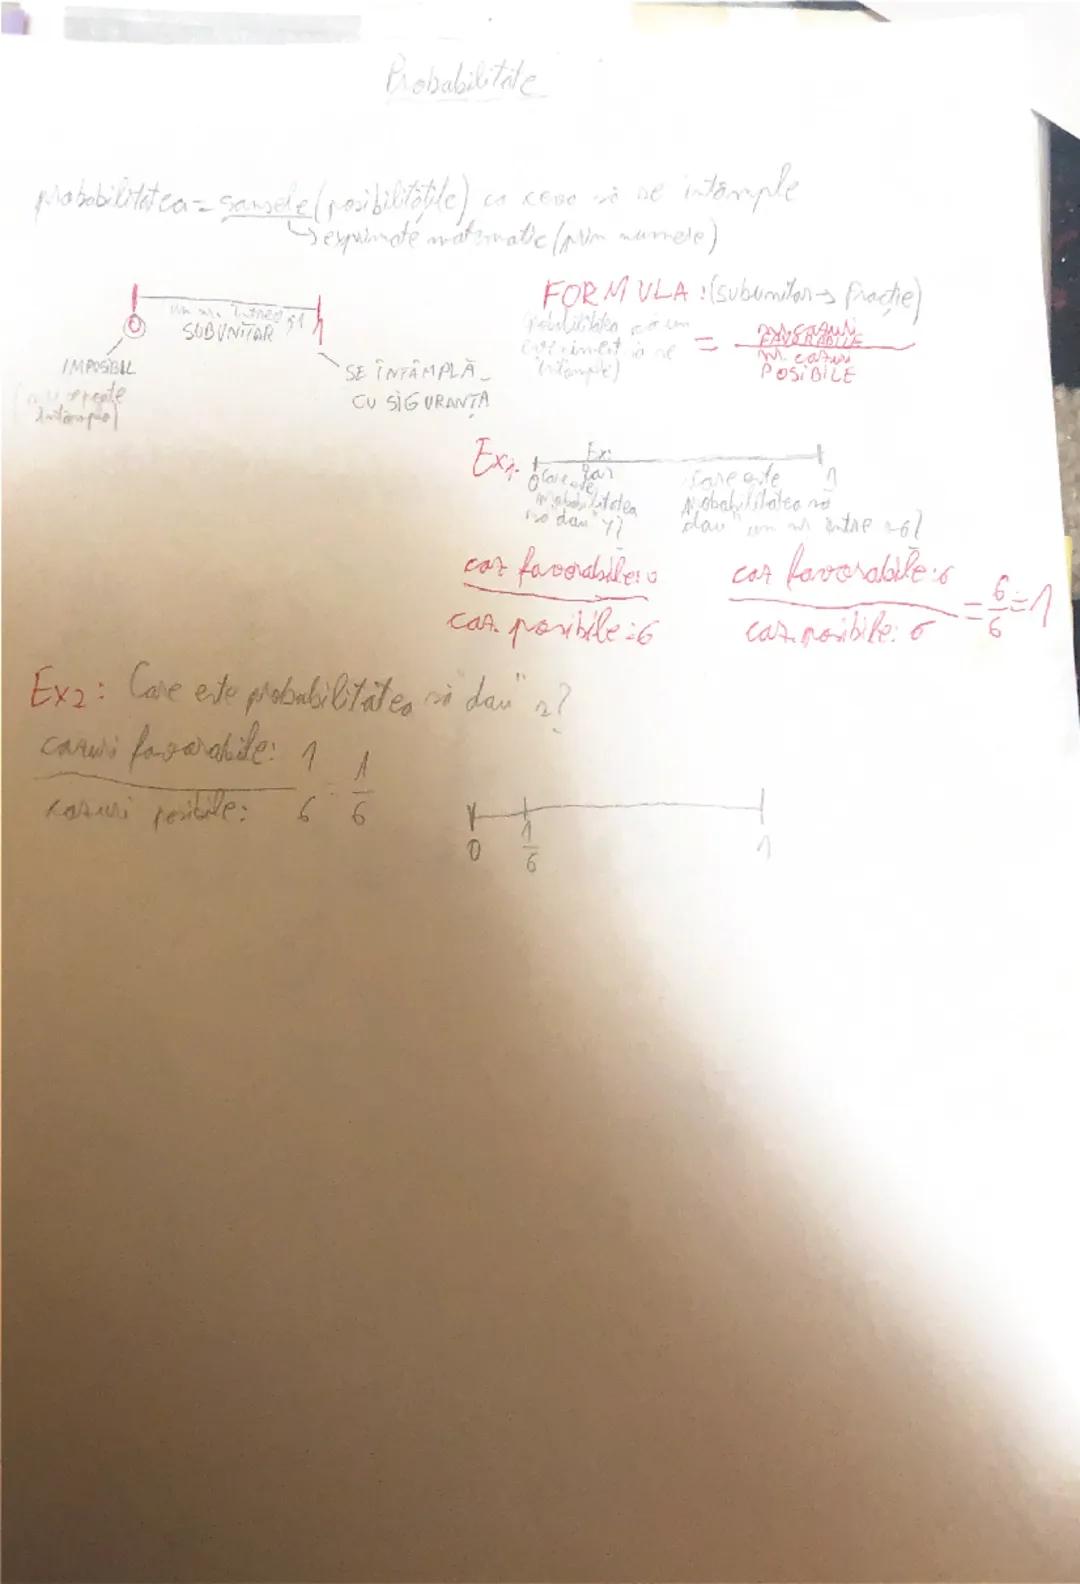 Probabilitate
probabilitatea = șansele (posibilitățile) ca ceva să se întâmple
exprimate matematic (prin numere)
un nr. între 0 și 1
SUBUNITAR
0
1
IMPOSIBIL
(nu se poate
întâmpla)
SE ÎNTÂMPLĂ
CU SIGURANȚA
FORMULA: (subunitar → fracție)
probabilitatea ca un
eveniment să se
întâmple)
=
nr. cazuri
FAVORABILE
nr. cazuri
POSIBILE
Ex1.
Ex:
zar
0
Care este
probabilitatea
să dau "7"?
1
Care este
probabilitatea să
dau "un nr între 1-6?
caz favorabile: 0
caz. posibile: 6
caz favorabile: 6
caz. posibile: 6
= 6/6 = 1
Ex2: Care este probabilitatea să "dau" 2?
cazuri favorabile: 1
cazuri posibile: 6
= 1/6
0 1/6 1